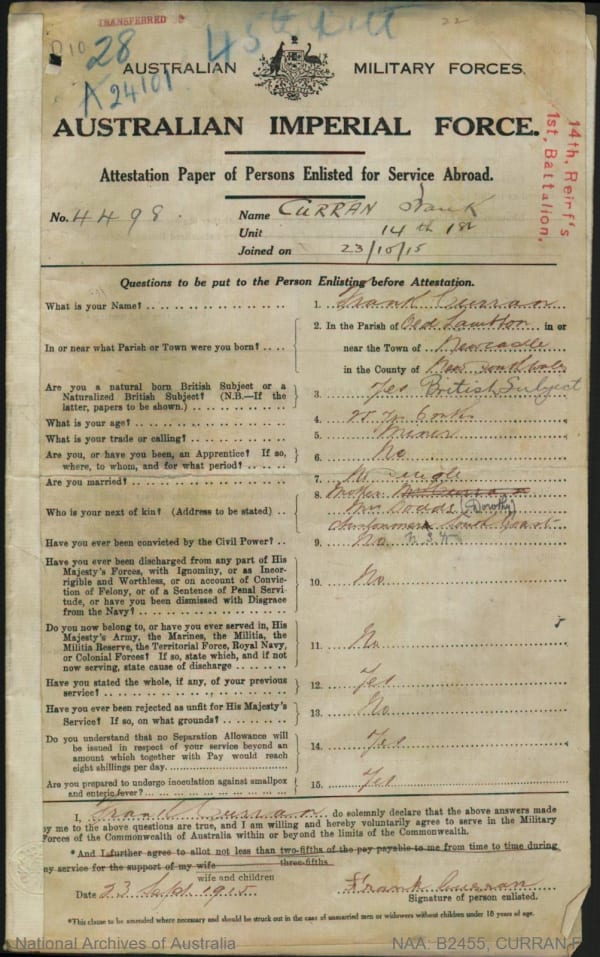 TRANSFERRED
22
D10
28
45th Batt
A24101
AUSTRALIAN MILITARY FORCES.
AUSTRALIAN IMPERIAL FORCE.
14th, Reinf's
1st, Battalion,
Attestation Paper of Persons Enlisted for Service Abroad.
No. 4498. Name CURRAN Frank
Unit 14th 1st
Joined on 23/10/15
Questions to be put to the Person Enlisting before Attestation.
What is your Name? 1. Frank Curran
In or near what Parish or Town were you born? 2. In the Parish of Old Lambton in or
near the Town of Newcastle
in the County of New South Wales
Are you a natural born British Subject or a Naturalized British Subject? (N.B.—If the latter, papers to be shown.) 3. Yes British Subject
What is your age? 4.
What is your trade or calling? 5. Miner
Are you, or have you been, an Apprentice? If so, where, to whom, and for what period? 6. No
Are you married? 7. Single
Who is your next of kin? (Address to be stated) 8. Mother
Mrs Dodds (Dorothy)
South Coast
N.S.W.
Have you ever been convicted by the Civil Power? 9. No
Have you ever been discharged from any part of His Majesty's Forces, with Ignominy, or as Incorrigible and Worthless, or on account of Conviction of Felony, or of a Sentence of Penal Servitude, or have you been dismissed with Disgrace from the Navy? 10. No
Do you now belong to, or have you ever served in, His Majesty's Army, the Marines, the Militia, the Militia Reserve, the Territorial Force, Royal Navy, or Colonial Forces? If so, state which, and if not now serving, state cause of discharge 11. No
Have you stated the whole, if any, of your previous service? 12. Yes
Have you ever been rejected as unfit for His Majesty's Service? If so, on what grounds? 13. No
Do you understand that no Separation Allowance will be issued in respect of your service beyond an amount which together with Pay would reach eight shillings per day. 14. Yes
Are you prepared to undergo inoculation against smallpox and enteric fever? 15. Yes
I, Frank Curran do solemnly declare that the above answers made
by me to the above questions are true, and I am willing and hereby voluntarily agree to serve in the Military
Forces of the Commonwealth of Australia within or beyond the limits of the Commonwealth.
*And I further agree to allot not less than two-fifths of the pay payable to me from time to time during
three-fifths
my service for the support of my wife
wife and children
Date 23 Sept 1915 Frank Curran
Signature of person enlisted.
*This clause to be amended where necessary and should be struck out in the case of unmarried men or widowers without children under 18 years of age.
National Archives of Australia NAA: B2455, CURRAN F